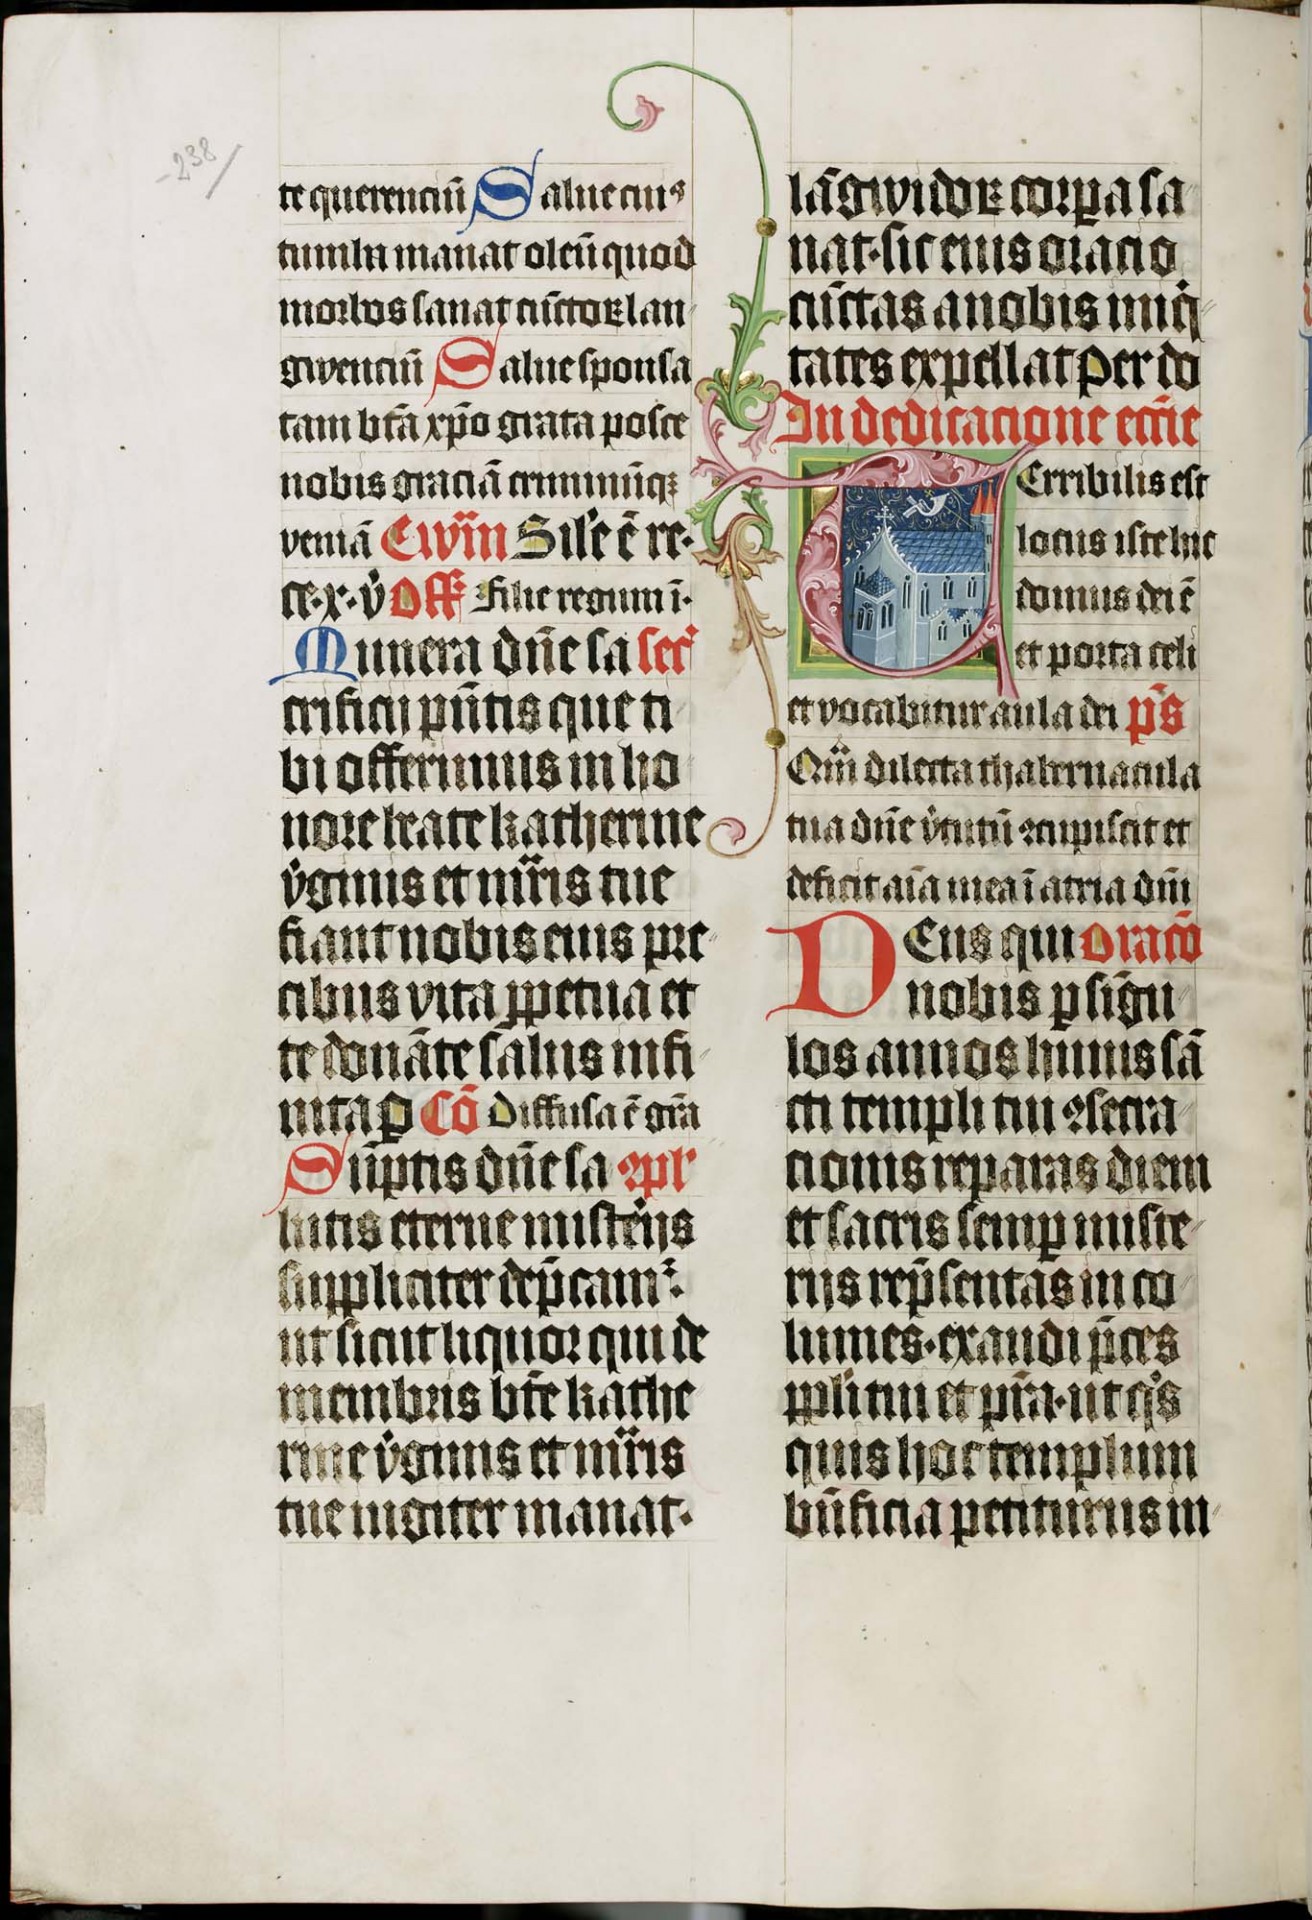 -238/
te querenciū Salue cuiꝰ
tumĺn manat oleū quod
morbos sanat cūctoꝝ lan
gwenciū Salue sponsa
tam btā xp̄o grata posce
nobis graciā criminūqꝫ
veniā Ewm̄ Sil'e ē re
ce·x·v̓ Off Filie regum ī·
Munera dn̄e sa secr̄
crificij pn̄tis que ti
bi offerimus in ho
nore beate katherine
v̓ginis et mr̄is tue
fiant nobis eius pre
cibus vita ꝑpetua et
te donāte salus infi
nita ꝑ Cō Diffusa ē grā
Sūptis dn̄e sa ꝯpl'
lutis eterne mist̓ijs
suppliciter dep̄camꝰ
ut sicut liquor qui de
membris bt̄e kathe
rine v̓ginis et mr̄is
tue iugiter manat·
lāgwidoꝝ corꝑa sa
nat·sic eius oracio
cūctas a nobis iniq̇
tates expellat Per do
In dedicacione eccīe
TErribilis est
locus iste hic
domus dei ē
et porta celi
et vocabitur aula dei p̄s
Qm̄ dilecta thabernacula
tua dn̄e v̓tutū ꝯcupiscit et
deficit aīa mea ī atria dn̄i
DEus qui Oracō
nobis ꝑ sīgu
los annos huius sā
cti templi tui ꝯsecra
cionis reparas diem
et sacris semꝑ miste
rijs rep̄sentas in co
lumes·exaudi p̄ces
ppl̄i tui et pr̄a·ut q̇s
quis hoc templum
bn̄ficia petiturus in